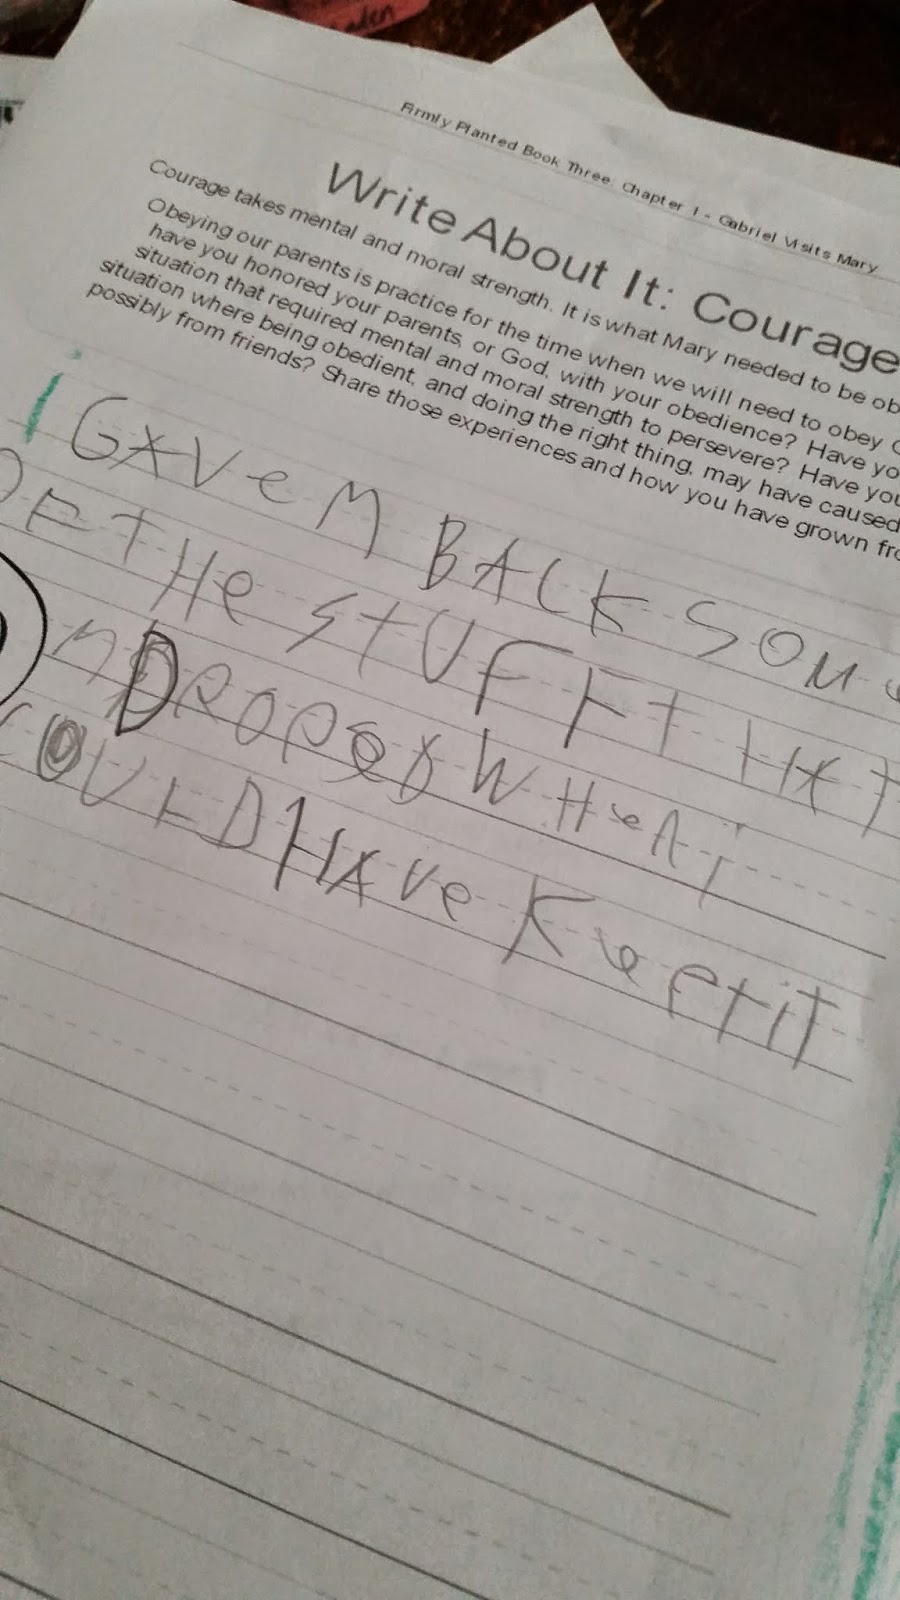 aden
Firmly Planted Book Three, Chapter 1 - Gabriel Visits Mary
Write About It: Courage
Courage takes mental and moral strength. It is what Mary needed to be ob
Obeying our parents is practice for the time when we will need to obey
have you honored your parents, or God, with your obedience? Have yo
situation that required mental and moral strength to persevere? Have you
situation where being obedient, and doing the right thing, may have caused
possibly from friends? Share those experiences and how you have grown fro
I GAVe M BACK SOMe
OF THe STUFF THAT
M DROPeD WHen i
COULD HAVe KePt iT